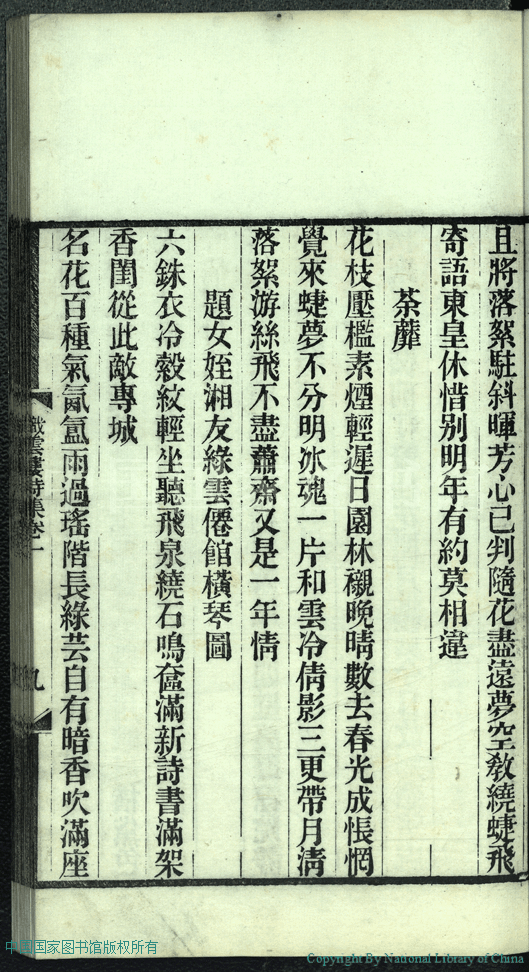 且將落絮駐斜暉芳心已判隨花盡遠夢空敎繞蜨飛
寄語東皇休惜别明年有約莫相違
荼蘼
花枝壓檻素煙輕遲日園林襯晚晴數去春光成悵惘
覺來蜨夢不分明冰魂一片和雲冷倩影三更帶月淸
落絮游絲飛不盡蕭齋又是一年情
題女姪湘友綠雲僊館橫琴圖
六銖衣冷縠紋輕坐聽飛泉繞石鳴奩滿新詩書滿架
香閨從此敵專城
名花百種氣氤氳雨過瑤階長綠芸自有暗香吹滿座
織雲樓詩集卷一
九
中国国家图书馆版权所有
Copyright By National Library of China